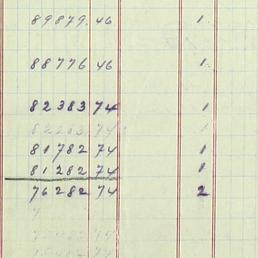 89879.46 1
88776 46 1
82383 74 1
81782 74 1
81282 74 1
76282 74 2